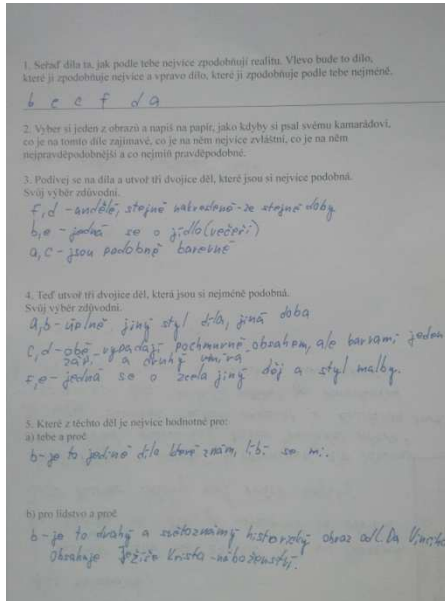 1. Seřaď díla ta, jak podle tebe nejvíce zpodobňují realitu. Vlevo bude to dílo,
které ji zpodobňuje nejvíce a vpravo dílo, které ji zpodobňuje podle tebe nejméně.
b e c f d a
2. Vyber si jeden z obrazů a napiš na papír, jako kdyby si psal svému kamarádovi,
co je na tomto díle zajímavé, co je na něm nejvíce zvláštní, co je na něm
nejpravděpodobnější a co nejmíň pravděpodobné.
3. Podívej se na díla a utvoř tři dvojice děl, které jsou si nejvíce podobná.
Svůj výběr zdůvodni.
f,d - andělé, stejně nakreslené - ze stejné doby
b,e - jedná se o jídlo (večeři)
a,c - jsou podobně barevné
4. Teď utvoř tři dvojice děl, která jsou si nejméně podobná.
Svůj výběr zdůvodni.
a,b - úplně jiný styl díla, jiná doba
c,d - obě vypadají pochmurně obsahem, ale barvami jeden
a druhý umírá.
f,e - jedná se o zcela jiný děj a styl malby.
5. Které z těchto děl je nejvíce hodnotné pro:
a) tebe a proč
b - je to jediné díla které znám, líbí se mi.
b) pro lidstvo a proč
b - je to drahý a světoznámý historický obraz od L. Da Vinciho
Obsahuje Ježíše Krista - náboženství.